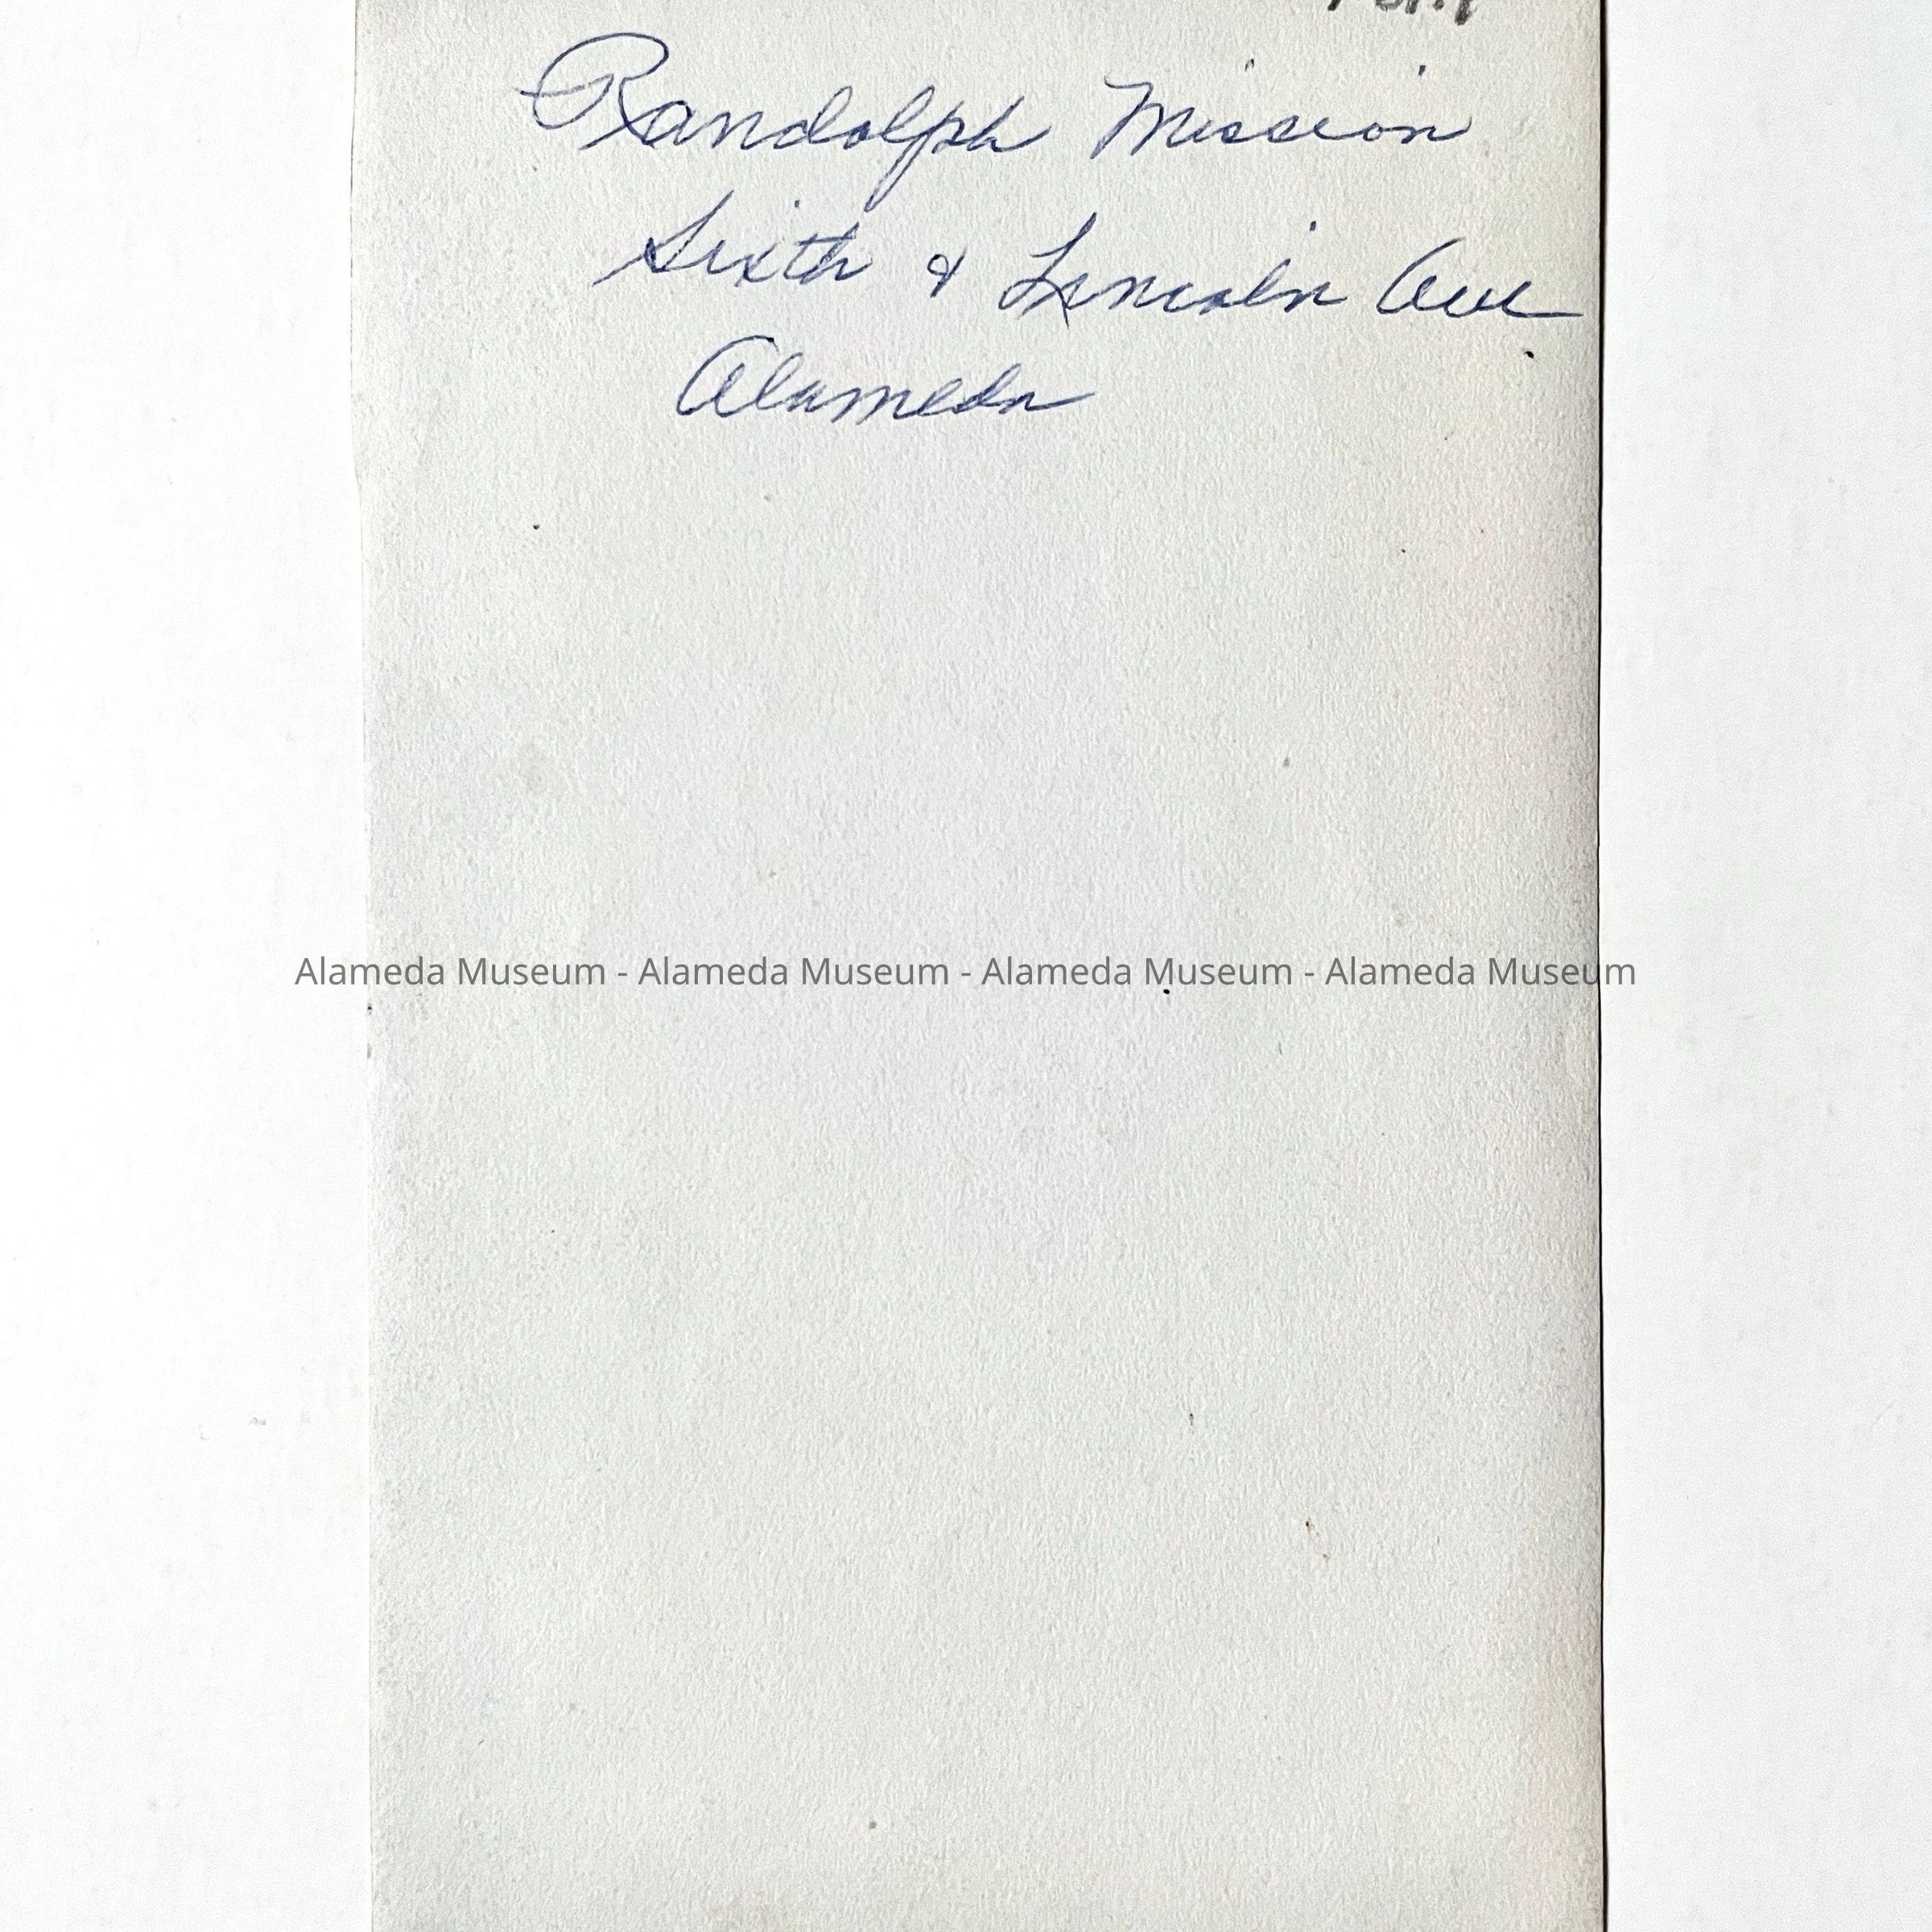 Randolph Mission
Sixth & Lincoln Ave
Alameda
Alameda Museum - Alameda Museum - Alameda Museum - Alameda Museum